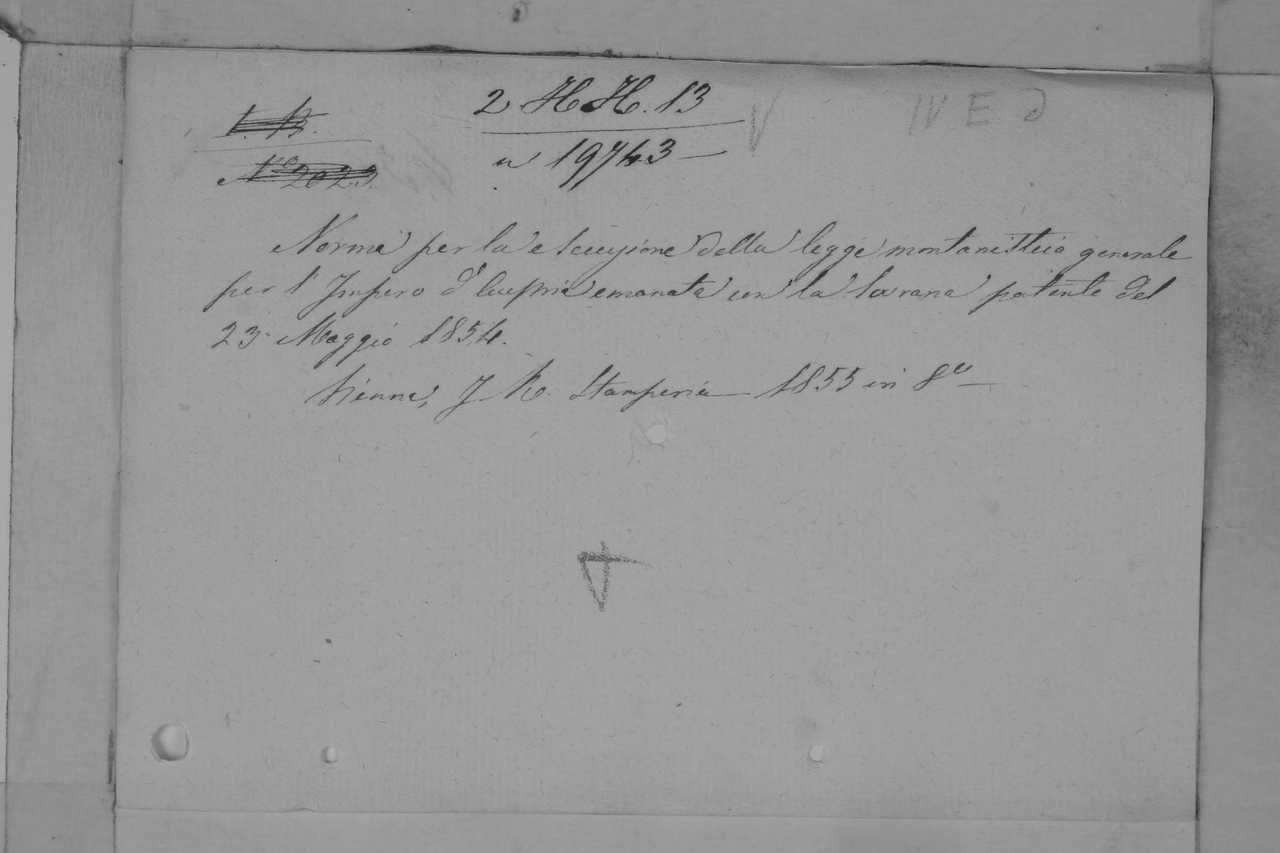 1. B.
2 H H. 13
IV E d
No 2022.
a 19743
Norme per la esecuzione della legge montanistica generale
per l' Impero d' Austria emanata con la Sovrana patente del
23 Maggio 1854.
Vienna, J. R. Stamperia 1855 in 8o